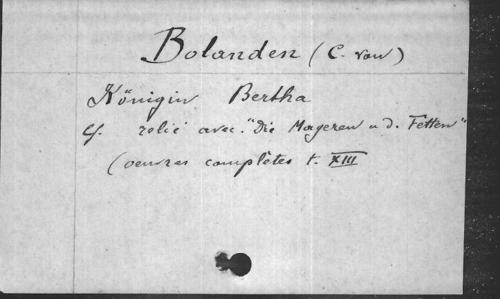 Bolanden (C. von)
Königin Bertha
cf. relié avec "Die Mageren u. d. Fetten"
(oeuvres complêtes t. XIII